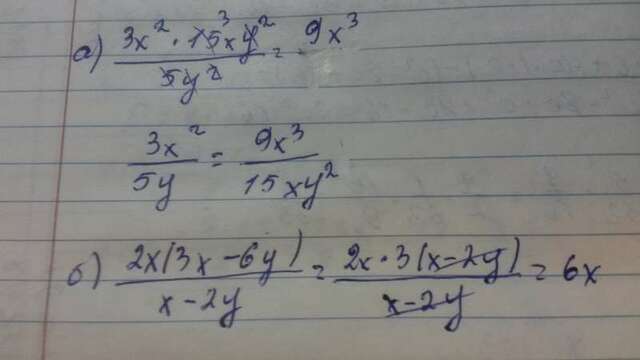 а) (3x² · 15³xy²)/(5y²) = 9x³
3x²/5y = 9x³/15xy²
б) 2x(3x − 6y)/(x − 2y) = 2x · 3(x − 2y)/(x − 2y) = 6x